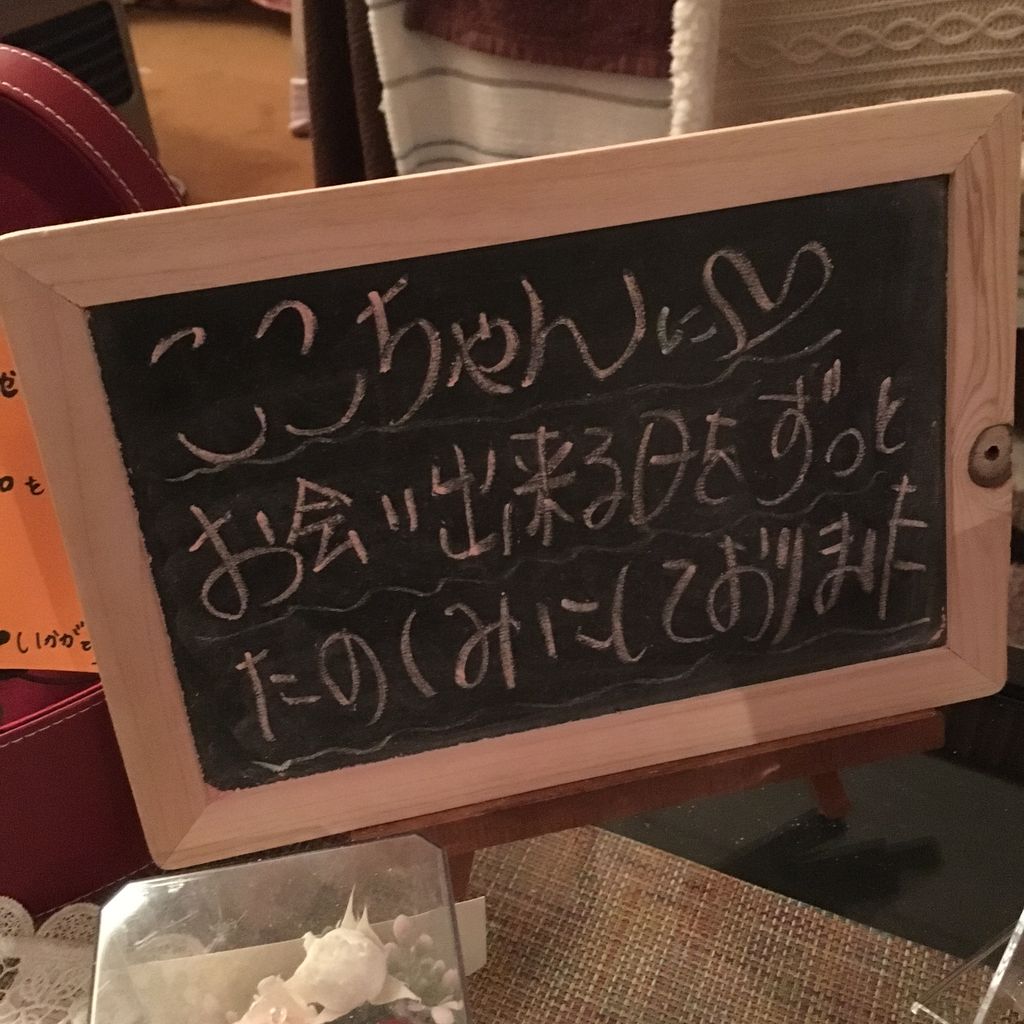 ここちゃんに♡
お会い出来る日をずっと
たのしみにしておりました
ぜ
を
♥いかがで